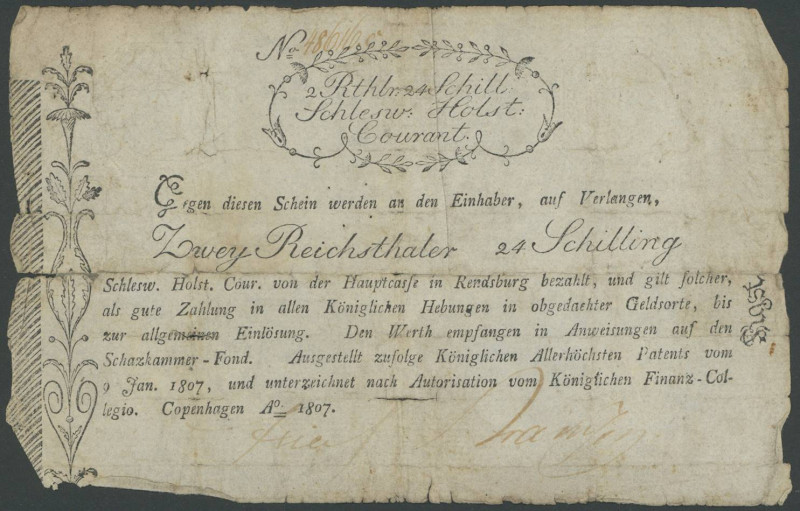 No
2 Rthlr. 24 Schill:
Schlesw: Holst:
Courant.
Gegen diesen Schein werden an den Einhaber, auf Verlangen,
Zwey Reichsthaler 24 Schilling
Schlesw. Holst. Cour. von der Hauptcasse in Rendsburg bezahlt, und gilt solcher,
als gute Zahlung in allen Königlichen Hebungen in obgedachter Geldsorte, bis
zur allgemeinen Einlösung. Den Werth empfangen in Anweisungen auf den
Schazkammer-Fond. Ausgestellt zufolge Königlichen Allerhöchsten Patents vom
9 Jan. 1807, und unterzeichnet nach Autorisation vom Königlichen Finanz-Col-
legio. Copenhagen Ao. 1807.